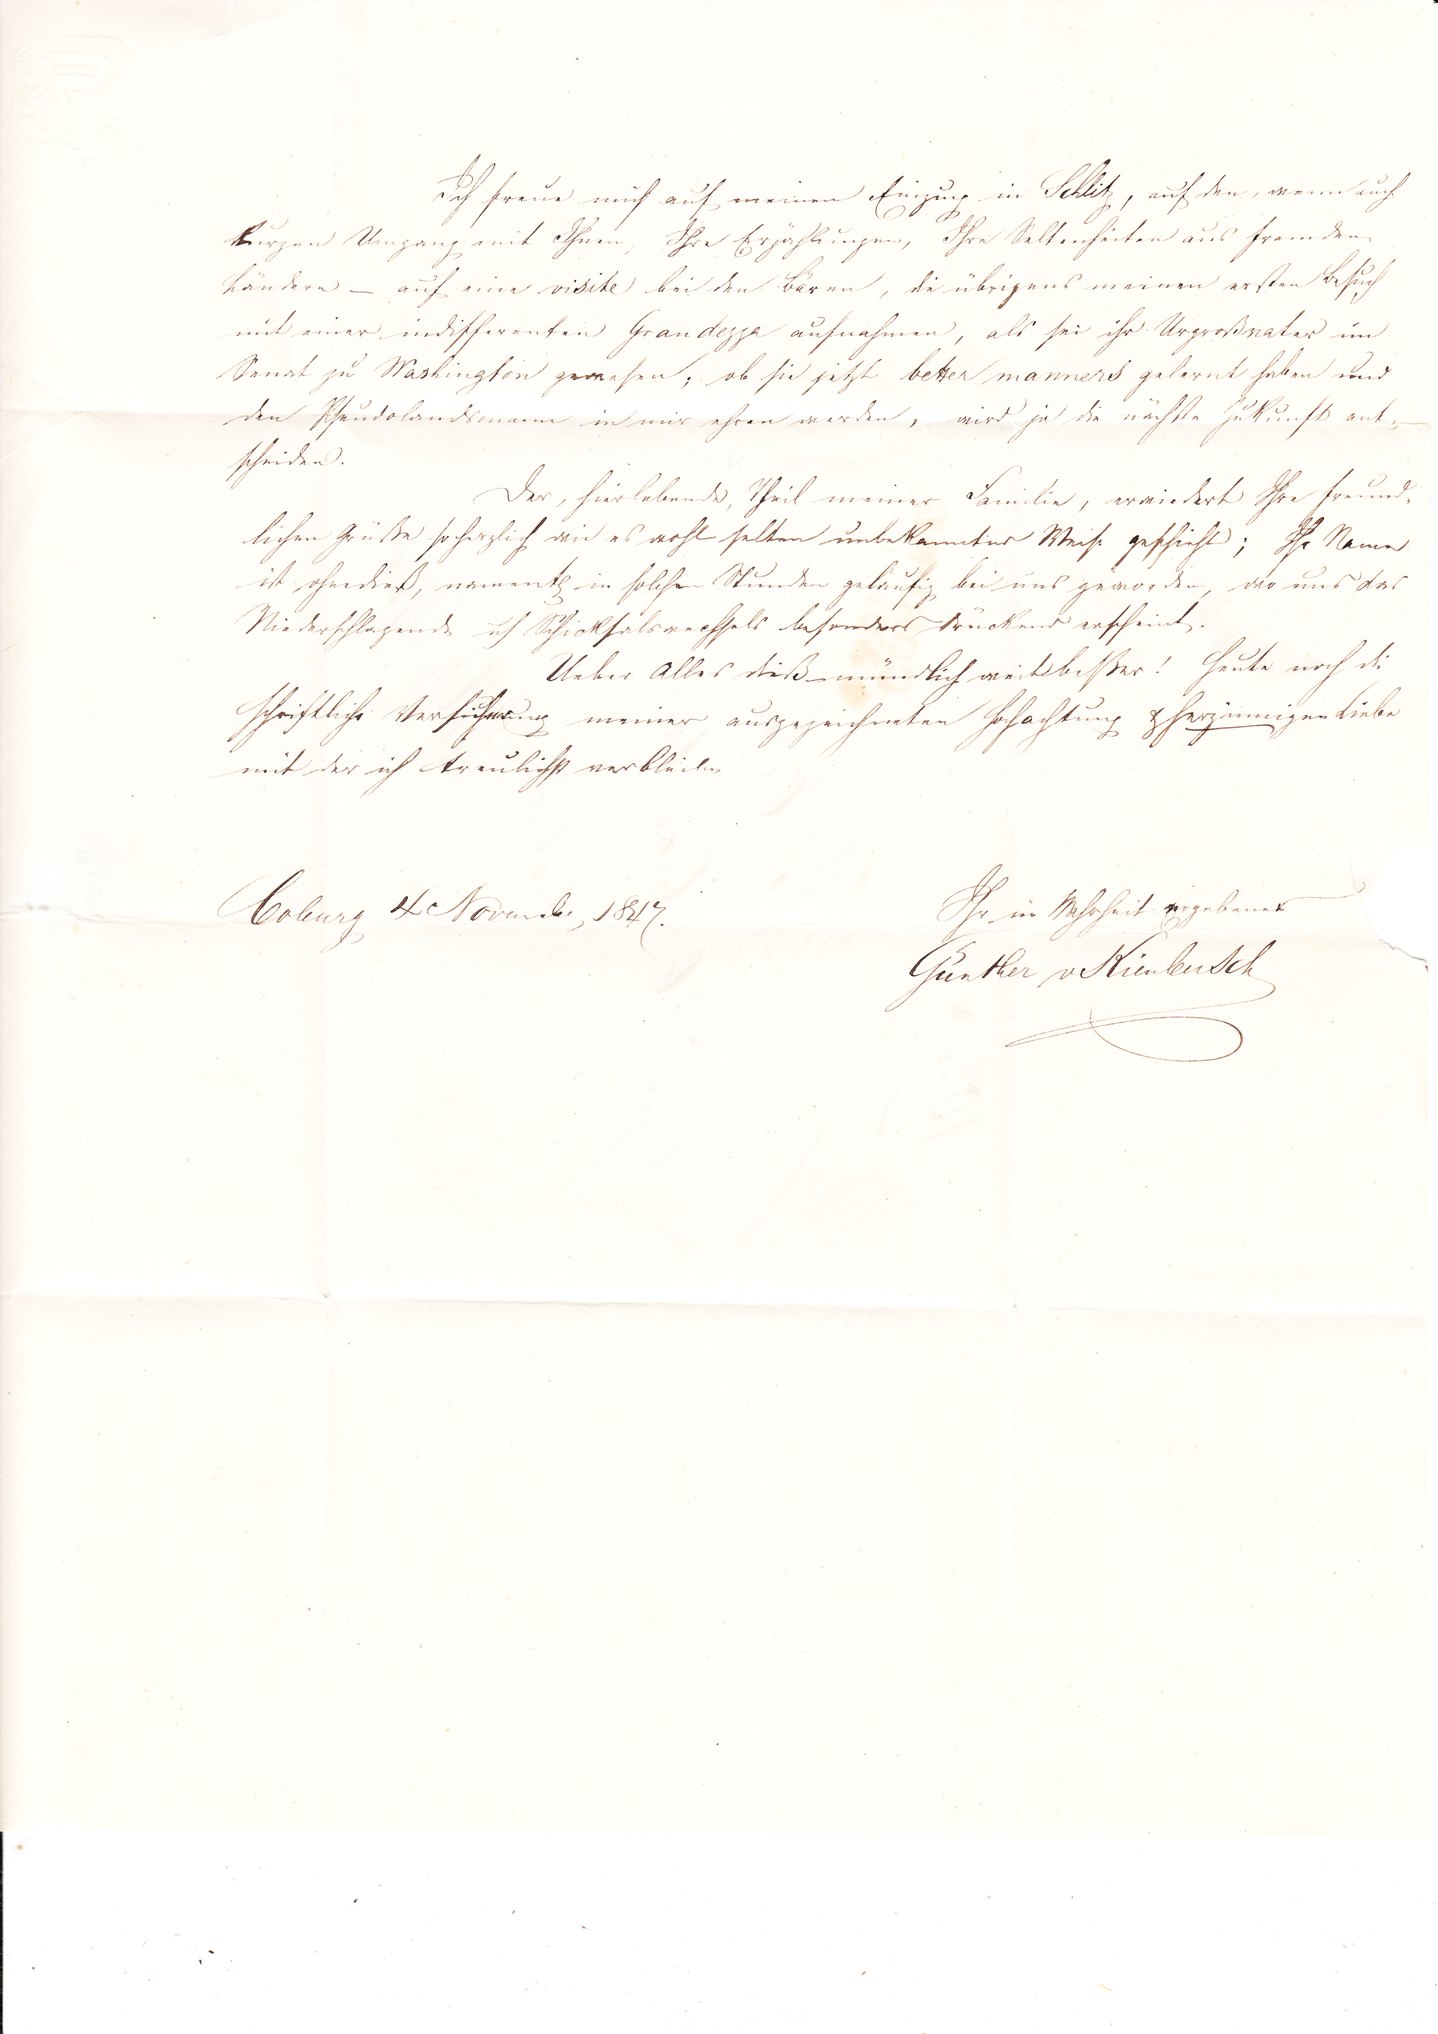 Ich freue mich auf meinen Einzug in Schlitz, auf den, wenn auch
kurzen Umgang mit Ihnen, Ihre Erzählungen, Ihre Seltenheiten aus fremden
Ländern — auf eine visite bei den Bären, die übrigens meinen ersten Besuch
mit einer indifferenten Grandezza aufnahmen, als sei ihr Urgroßvater im
Senat zu Washington gewesen; ob sie jetzt better manners gelernt haben und
den Pseudolandsmann in mir ehren werden, wird ja die nächste Zukunft ent-
scheiden.
Der, hierlebende, Theil meiner Familie, erwiedert Ihre freund-
lichen Grüße so herzlich wie es wohl selten unbekannter Weise geschieht; Ihr Name
ist ohnedieß, namentl in solchen Stunden geläufig bei uns geworden, wo uns das
Niederschlagende des Schicksalswechsels besonders drückend erscheint.
Ueber Alles dieß mündlich weit beßer! Heute noch die
schriftliche Versicherung meiner ausgezeichneten Hochachtung & herzinnigen Liebe
mit der ich treulichst verbleibe
Coburg 4 Novembr, 1847.
Ihr in Wahrheit ergebener
Günther v Kienbusch